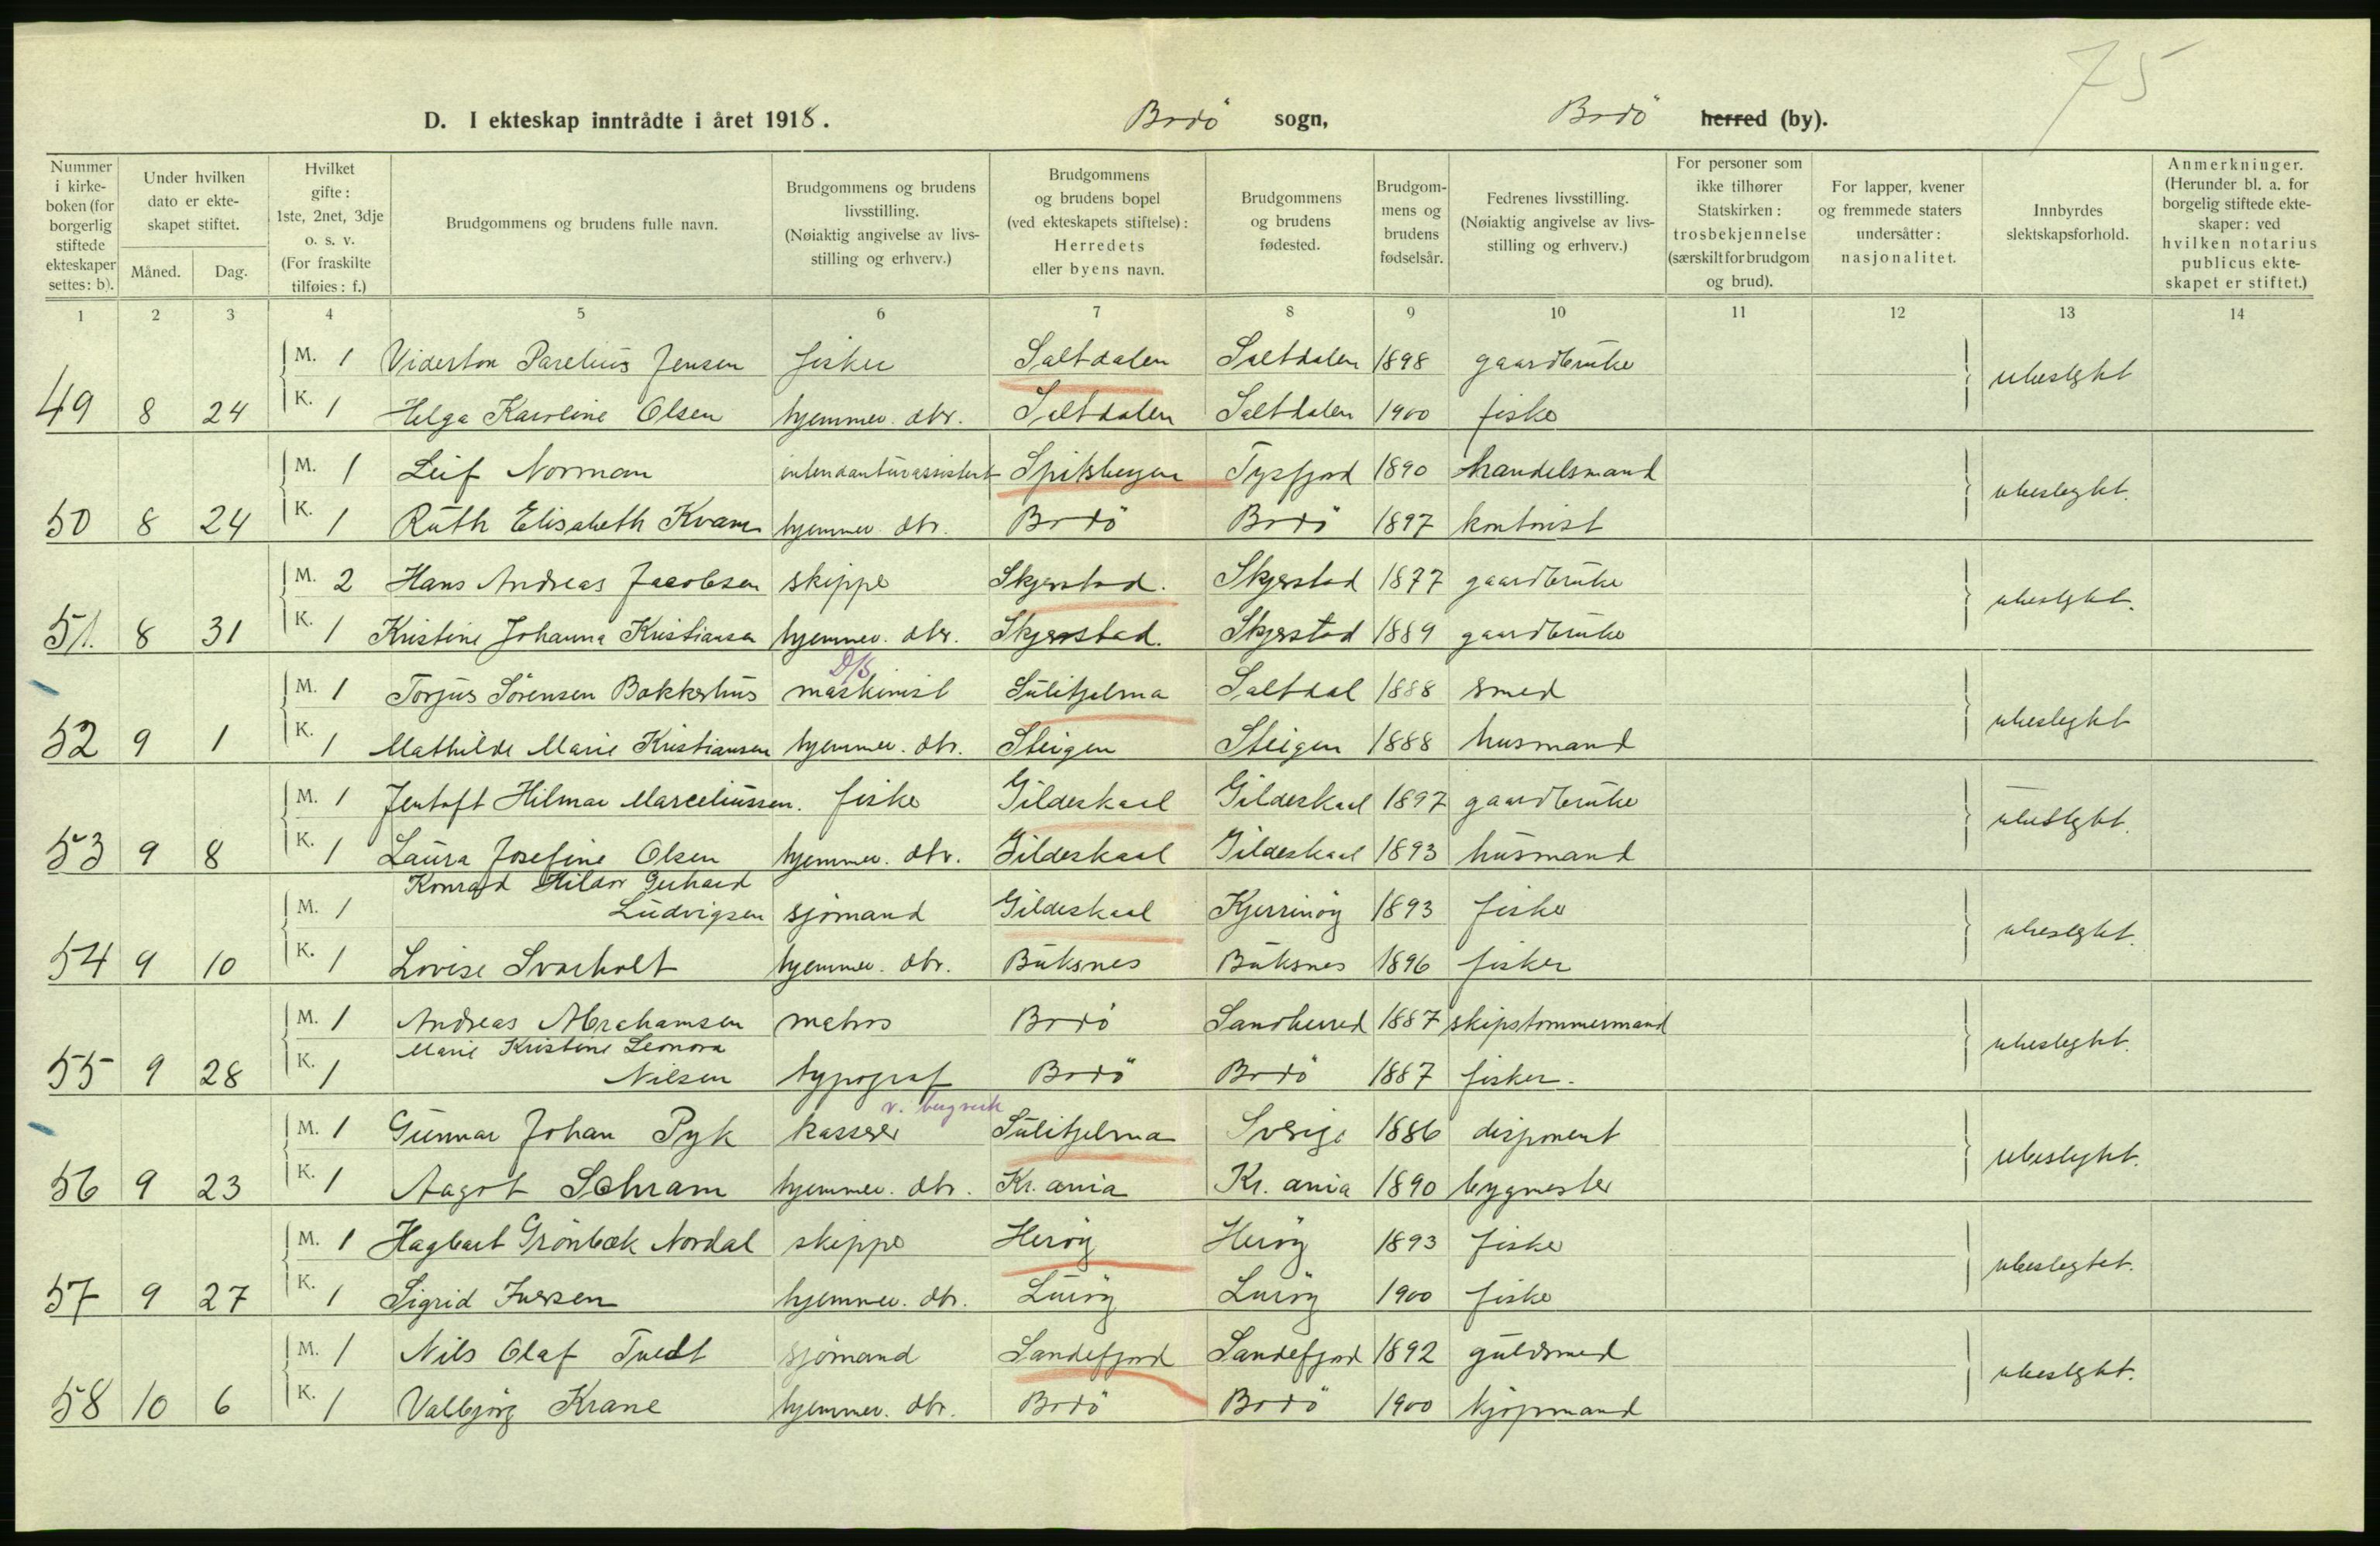 75
D. I ekteskap inntrådte i året 1918. Bodö sogn, Bodö herred (by).
Nummer i kirkeboken (for borgerlig stiftede ekteskaper settes: b).
Under hvilken dato er ekteskapet stiftet.
Måned. Dag.
Hvilket gifte: 1ste, 2net, 3dje o. s. v. (For fraskilte tilføies: f.)
Brudgommens og brudens fulle navn.
Brudgommens og brudens livsstilling. (Nøiaktig angivelse av livsstilling og erhverv.)
Brudgommens og brudens bopel (ved ekteskapets stiftelse): Herredets eller byens navn.
Brudgommens og brudens fødested.
Brudgommens og brudens fødselsår.
Fedrenes livsstilling. (Nøiaktig angivelse av livsstilling og erhverv.)
For personer som ikke tilhører Statskirken: trosbekjennelse (særskilt for brudgom og brud).
For lapper, kvener og fremmede staters undersåtter: nasjonalitet.
Innbyrdes slektskapsforhold.
Anmerkninger. (Herunder bl. a. for borgelig stiftede ekteskaper: ved hvilken notarius publicus ekteskapet er stiftet.)
1 2 3 4 5 6 7 8 9 10 11 12 13 14
M. 1 Viderton Parelius Jensen fisker Saltdalen Saltdalen 1898 gaardbruker ubeslegtet
49 8 24 K. 1 Helga Karoline Olsen hjemmev. dtr. Saltdalen Saltdalen 1900 fisker
M. 1 Leif Norman intendanturassistent Spitsbergen Tysfjord 1890 handelsmand ubeslegtet.
50 8 24 K. 1 Ruth Elisabeth Kvam hjemmev. dtr. Bodö Bodö 1897 kontorist
M. 2 Hans Andreas Jacobsen skipper Skjerstad. Skjerstad 1877 gaardbruker ubeslegtet.
51. 8 31 K. 1 Kristine Johanna Kristiansen hjemmev. dtr. Skjerstad. Skjerstad 1889 gaardbruker
D/S
M. 1 Torjus Sörensen Bakkerhus maskinist Sulitjelma Saltdal 1888 smed ubeslegtet
52 9 1 K. 1 Mathilde Marie Kristiansen hjemmev. dtr. Steigen Steigen 1888 husmand
M. 1 Jentoft Hilmar Marceliussen. fisker Gildeskaal Gildeskaal 1897 gaardbruker ubeslegtet.
53 9 8 K. 1 Laura Josefine Olsen hjemmev. dtr. Gildeskaal Gildeskaal 1893 husmand
Konrad Hildor Gerhard
M. 1 Ludvigsen sjömand Gildeskaal Kjerringöy 1893 fisker ubeslegtet.
54 9 10 K. 1 Lovise Svarholt hjemmev. dtr. Buksnes Buksnes 1896 fisker
M. 1 Andreas Abrahamsen matros Bodö Sandherred 1887 skipstømmermand ubeslegtet.
Marie Kristine Leonora
55 9 28 K. 1 Nilsen typograf Bodö Bodö 1887 fisker.
v. bergverk
M. 1 Gunnar Johan Pyk kasserer Sulitjelma Sverige 1886 disponent ubeslegtet.
56 9 23 K. 1 Aagot Schram hjemmev. dtr. Kr.ania Kr.ania 1890 bygmester
M. 1 Hagbart Grönbæk Nordal skipper Heröy Heröy 1893 fisker ubeslegtet.
57 9 27 K. 1 Sigrid Iversen hjemmev. dtr. Luröy Luröy 1900 fisker
M. 1 Nils Olaf Tvedt sjömand Sandefjord Sandefjord 1892 guldsmed ubeslegtet.
58 10 6 K. 1 Valbjörg Krane hjemmev. dtr. Bodö Bodö 1900 kjöpmand